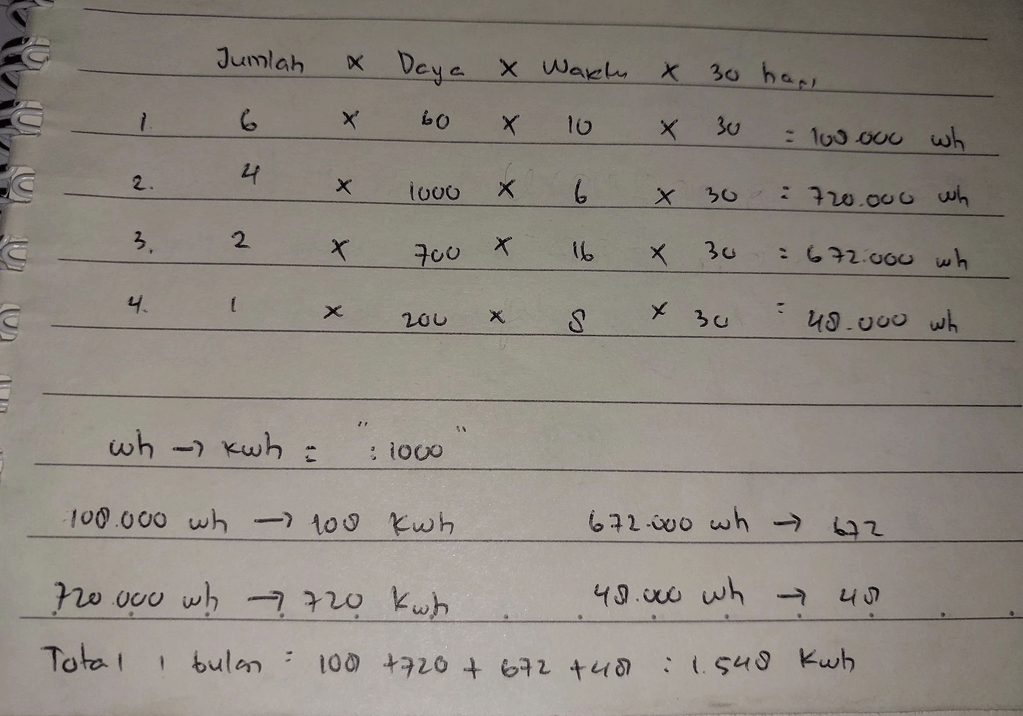 Jumlah x Daya x Waktu x 30 hari
1. 6 x 60 x 10 x 30 = 108.000 wh
2. 4 x 1000 x 6 x 30 = 720.000 wh
3. 2 x 700 x 16 x 30 = 672.000 wh
4. 1 x 200 x 8 x 30 = 48.000 wh
wh → kwh = ": 1000"
108.000 wh → 108 Kwh 672.000 wh → 672
720.000 wh → 720 Kwh 48.000 wh → 48
Total 1 bulan = 108 + 720 + 672 + 48 : 1.548 Kwh